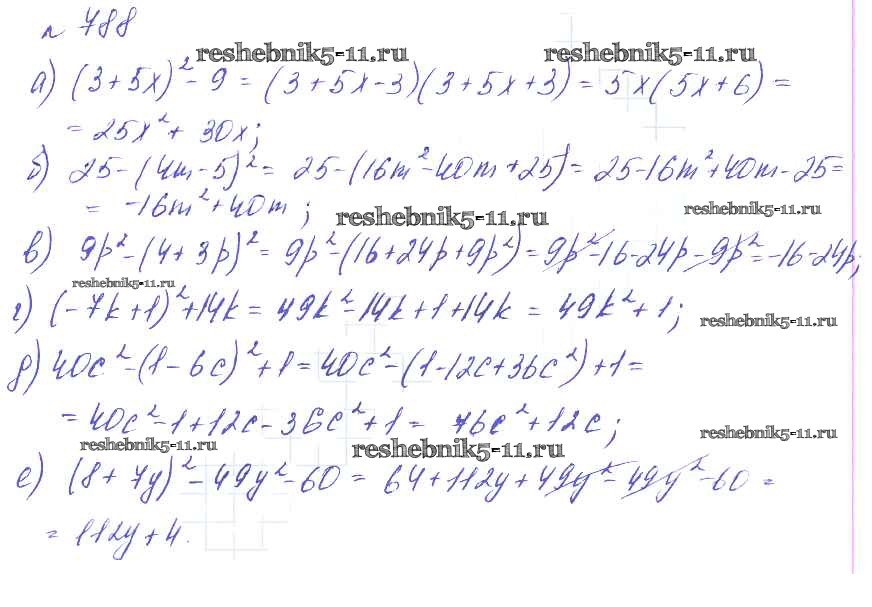 № 788
reshebnik5-11.ru reshebnik5-11.ru
а) (3+5x)² - 9 = (3+5x-3)(3+5x+3) = 5x(5x+6) =
= 25x² + 30x;
б) 25-(4m-5)² = 25-(16m²-40m+25) = 25-16m²+40m-25 =
= -16m²+40m;
reshebnik5-11.ru reshebnik5-11.ru
в) 9p²-(4+3p)² = 9p²-(16+24p+9p²) = 9p²-16-24p-9p² = -16-24p;
reshebnik5-11.ru
г) (-7k+1)²+14k = 49k²-14k+1+14k = 49k²+1;
reshebnik5-11.ru
д) 40c²-(1-6c)²+1 = 40c²-(1-12c+36c²)+1 =
= 40c²-1+12c-36c²+1 = 76c²+12c;
reshebnik5-11.ru reshebnik5-11.ru reshebnik5-11.ru
е) (8+7y)²-49y²-60 = 64+112y+49y²-49y²-60 =
= 112y+4.